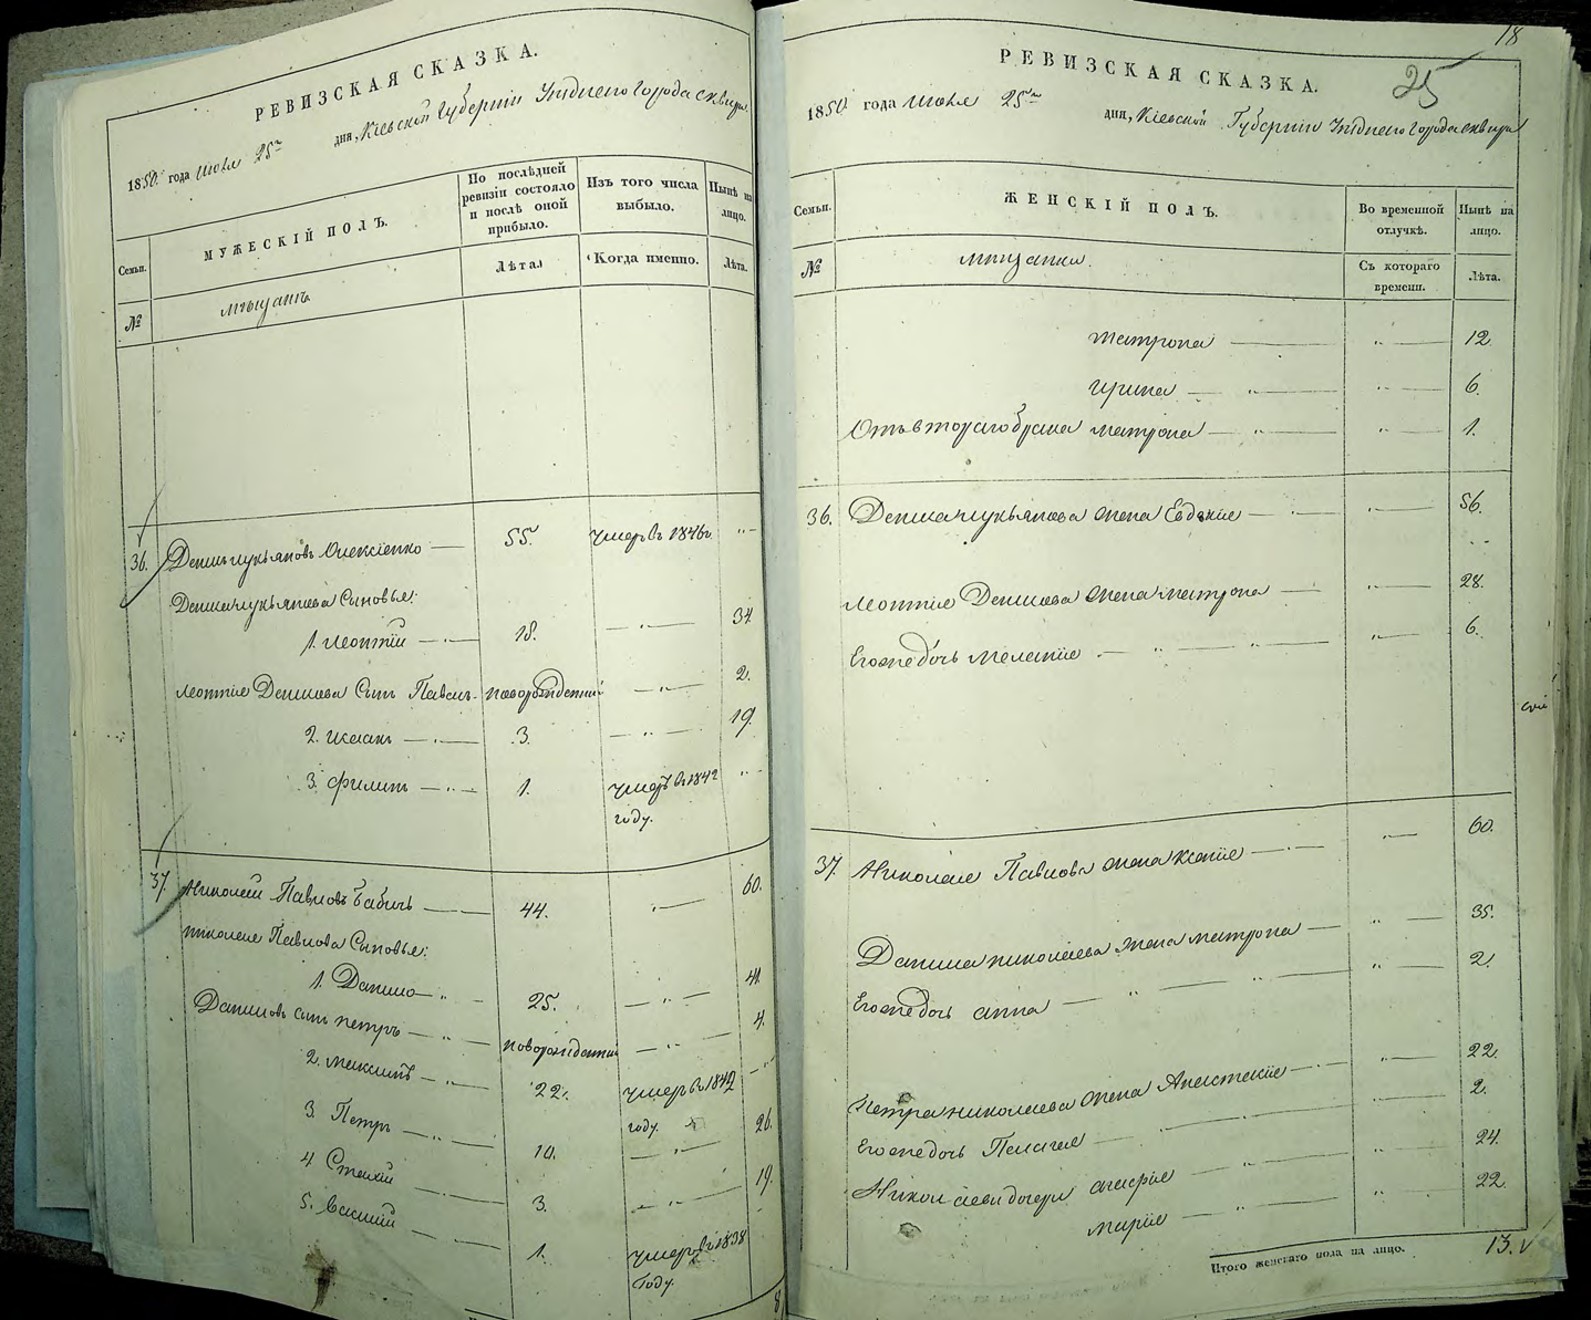 РЕВИЗСКАЯ СКАЗКА.
1850. года июля 25го дня, Кіевской Губерніи Уѣзднаго Города Сквиры
Семьи.
МУЖЕСКІЙ ПОЛЪ.
По послѣдней ревизіи состояло и послѣ оной прибыло.
Изъ того числа выбыло.
Нынѣ на лицо.
№
мѣщанъ
Лѣта.
Когда именно.
Лѣта.
36. Денисъ Лукьяновъ Олексіенко — 55. умеръ въ 1846г. „ -
Дениса Лукьянова Сыновья:
1. Леонтій — „ — 18. — „ — 34
Леонтія Денисова Сынъ Павелъ - новорожденный — „ — 2.
2. Исаакъ — „ — 3. — „ — 19.
3. Филипъ — „ — 1. умеръ въ 1842 „ -
году.
37. Николай Павловъ Бабичъ — 44. „ — 60.
Николая Павлова Сыновья:
1. Данило — „ - 25. — „ — 41.
Даниловъ сынъ Петръ — „ — новорожденный — „ — 4.
2. Максимъ — „ — 22. умеръ въ 1842 „ -
году.
3. Петръ — „ — 10. — „ — 26.
4 Стахій — 3. — „ — 19.
5. Василій — 1. умеръ въ 1838
Году.
8
18
25
РЕВИЗСКАЯ СКАЗКА.
1850. года июля 25го дня, Кіевской Губерніи Уѣзднаго Города Сквиры
Семьи.
ЖЕНСКІЙ ПОЛЪ.
Во временной отлучкѣ.
Нынѣ на лицо.
№
мѣщанки.
Съ котораго времени.
Лѣта.
Матрона — „ — 12.
Ирина — „ — „ — 6.
Отъ втораго брака Матрона — „ — „ — 1.
36. Дениса Лукьянова жена Евдокія — „ — „ — 56.
Леонтія Денисова жена Матрона — „ — 28.
Его же дочь Меланія — „ — „ — „ — 6.
37. Николая Павлова жена Ксенія — „ — „ — 60.
Данила Николаева жена Матрона — „ — 35.
Его же дочь Анна — „ — „ — „ — 2.
Петра Николаева жена Анастасія — „ — „ — 22.
Его же дочь Пелагея — „ — „ — 2.
Николаевы дочери Агафія — „ — „ — 24.
Марія — „ — „ 22.
Итого женскаго пола на лицо. 13.